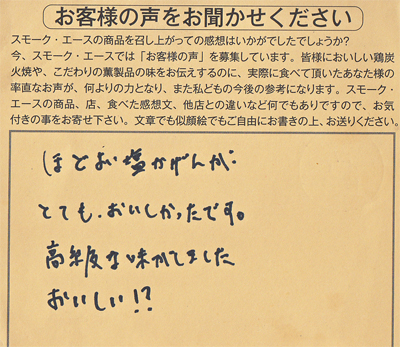 お客様の声をお聞かせください
スモーク・エースの商品を召し上がっての感想はいかがでしたでしょうか?
今、スモーク・エースでは「お客様の声」を募集しています。皆様においしい鶏炭
火焼や、こだわりの薫製品の味をお伝えするのに、実際に食べて頂いたあなた様の
率直なお声が、何よりの力となり、また私どもの今後の参考になります。スモーク・
エースの商品、店、食べた感想文、他店との違いなど何でもありですので、お気
付きの事をお寄せ下さい。文章でも似顔絵でもご自由にお書きの上、お送りください。
ほどよい塩かげんが、
とても、おいしかったです。
高級な味がしました
おいしい!?